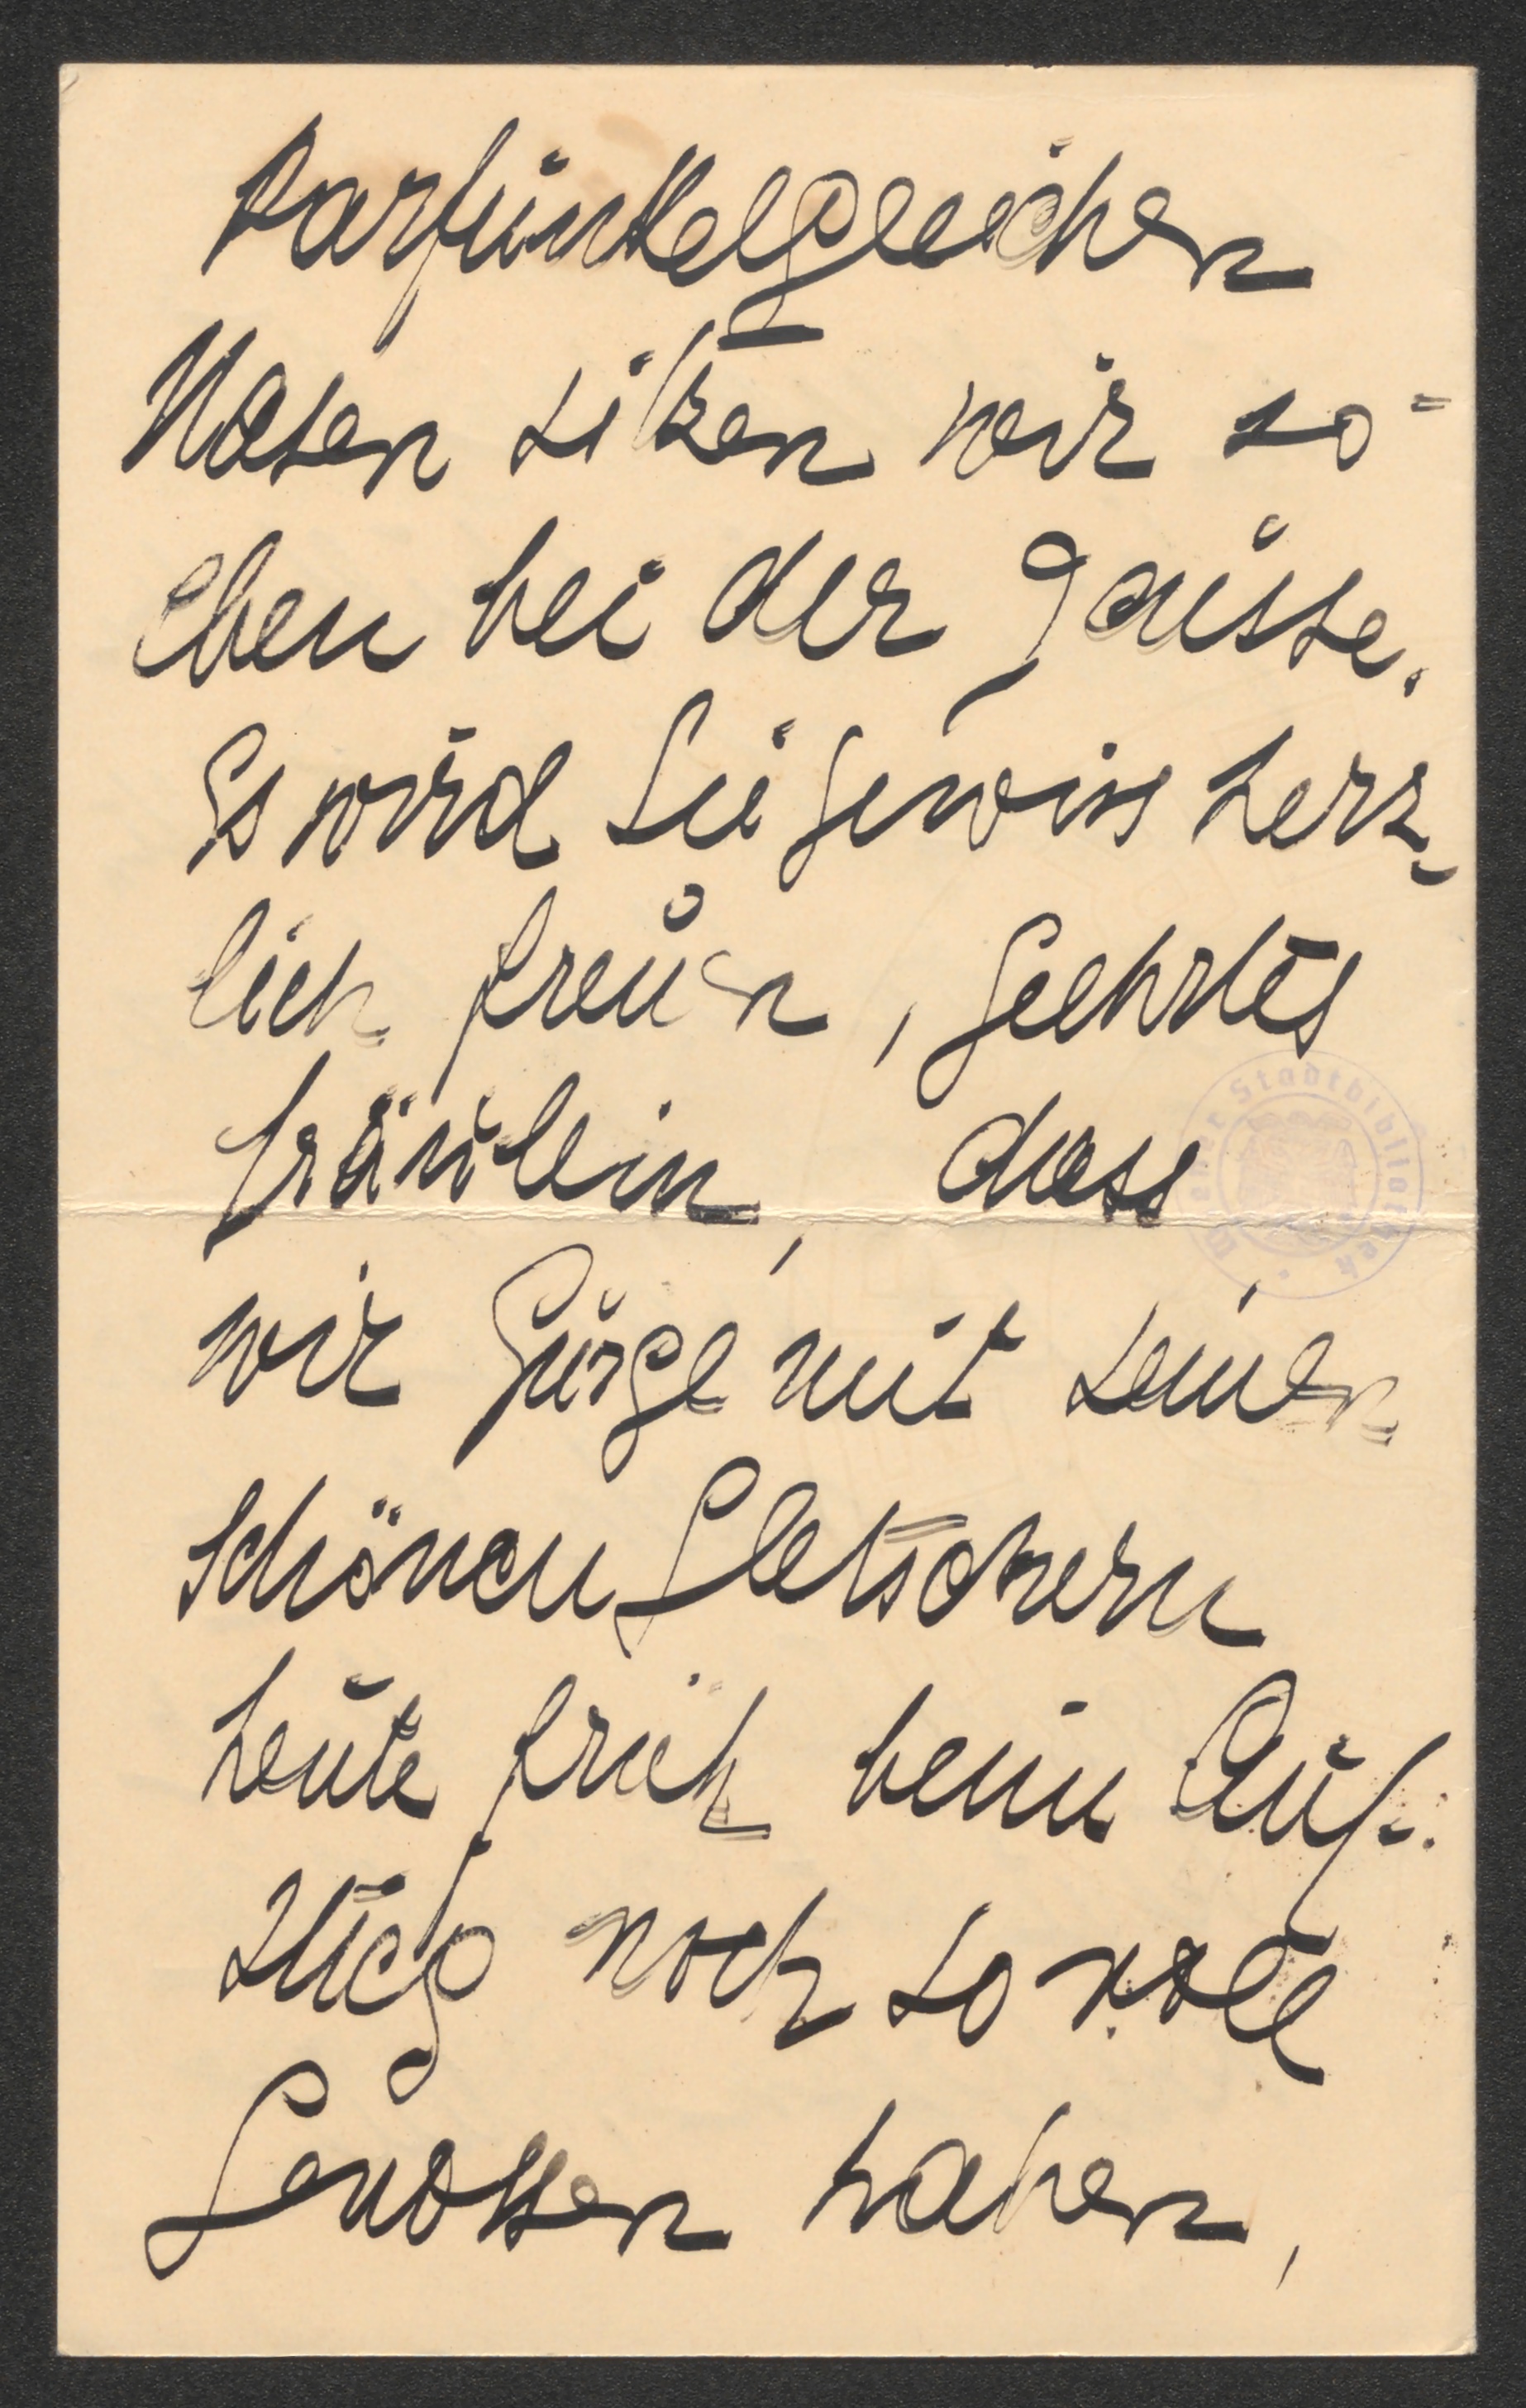 karfunkelgleichen
Nasen sitzen wir so=
eben bei der Jausse.
Es wird Sie gewiss herz-
lich freuen, geehrtes
Fräulein, dass
wir Gürgl mit seinen
schönen Gletschern
heute früh beim Auf-
stieg noch so voll
genossen haben,
Wiener Stadtbibliothek